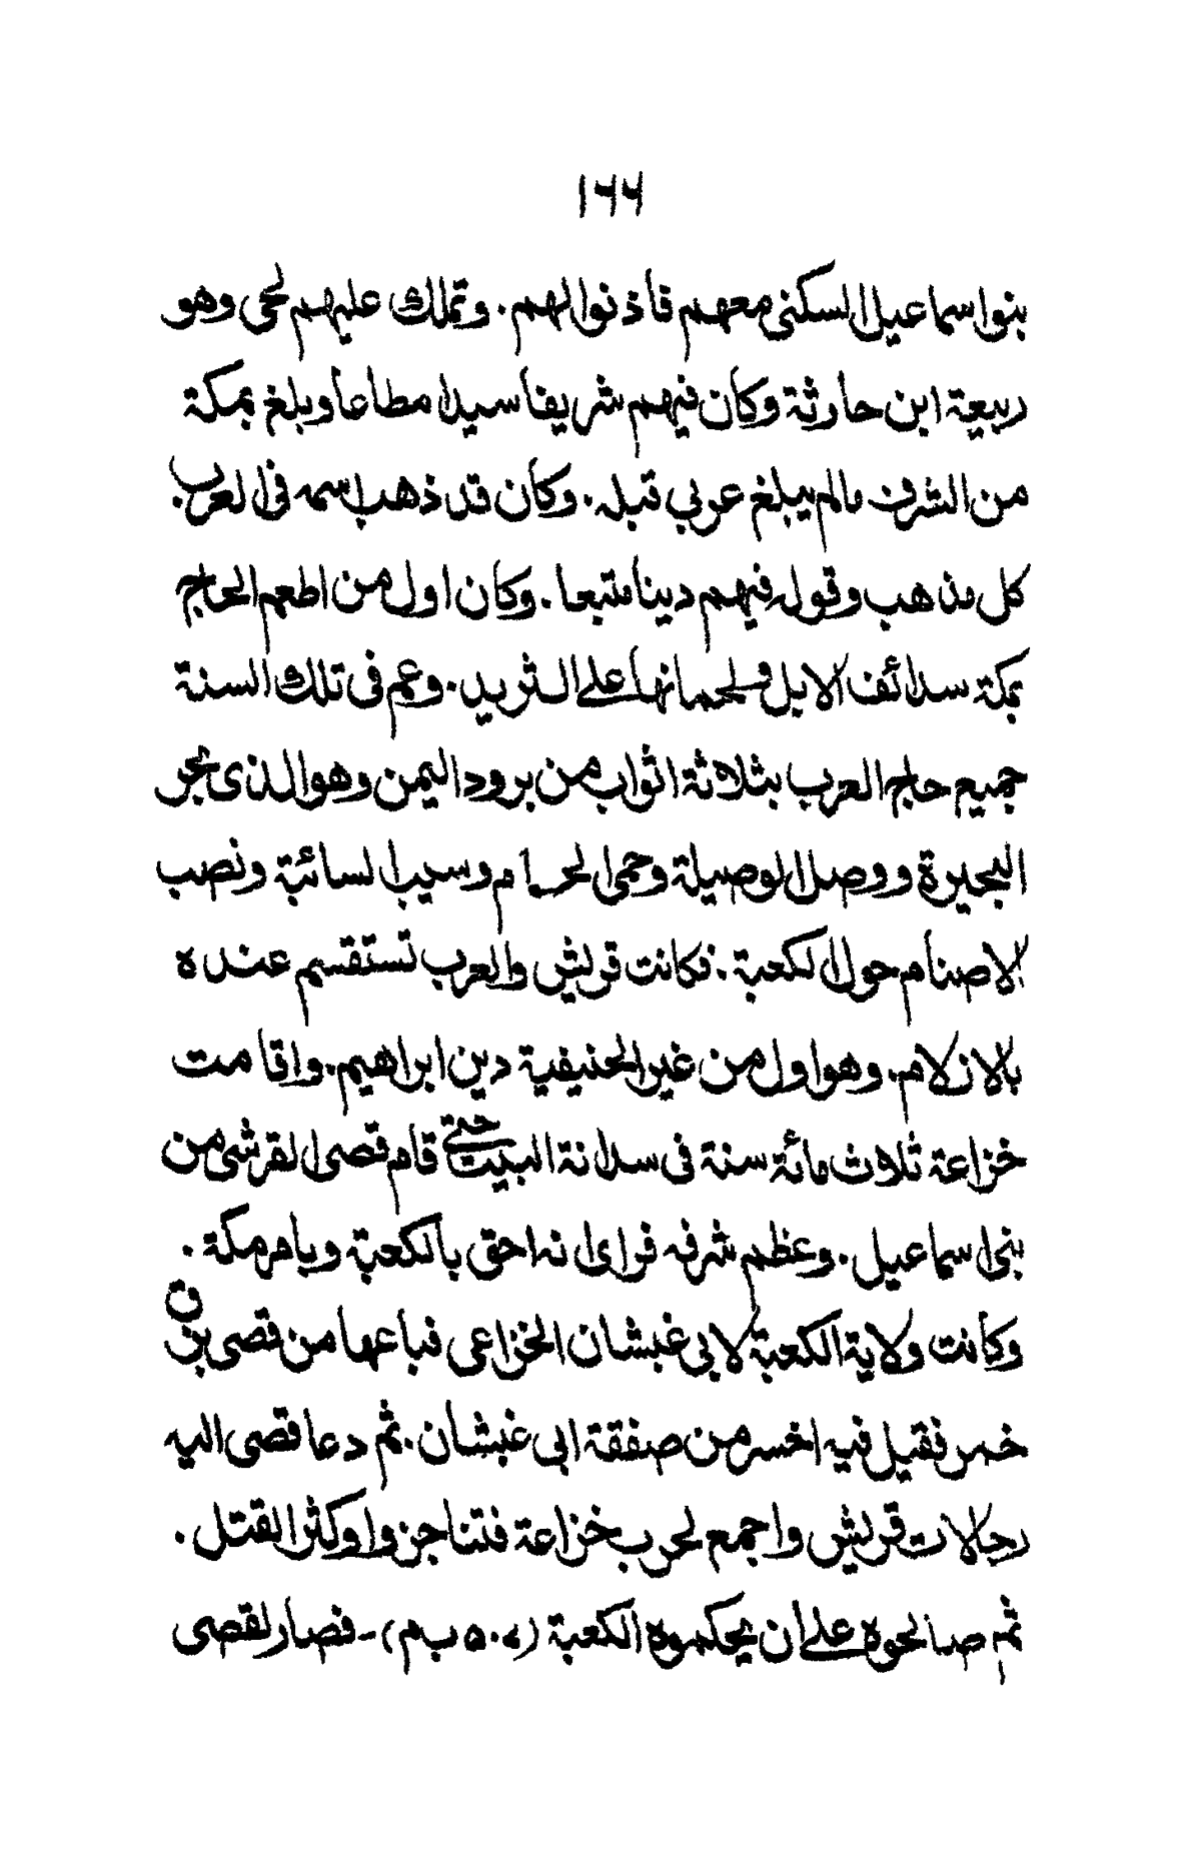 ١٦٦
بنوا سماعيل السكنى معهم فاذنوا لهم. وتملك عليهم لحى وهو
ربيعة ابن حارثة وكان فيهم شريفا سيدا مطاعا وبلغ بمكة
من الشرف مالم يبلغ عربي قبله. وكان قد ذهب اسمه فى العرب
كل مذهب وقوله فيهم دينا متبعا. وكان اول من اطعم الحاج
بمكة سدائف الابل ولحمانها على الثريد. وعم فى تلك السنة
جميع حاج العرب بثلاثة اثواب من برود اليمن وهو الذى بحر
البحيرة ووصل الوصيلة وحمى الحام وسيب السائبة ونصب
الاصنام حول الكعبة. فكانت قريش والعرب تستقسم عنده
بالازلام. وهو اول من غير الحنيفية دين ابراهيم. واقامت
خزاعة ثلاث مائة سنة فى سدانة البيت حتى قام قصى القرشى من
بنى اسماعيل. وعظم شرفه فراى انه احق بالكعبة وبامر مكة.
وكانت ولاية الكعبة لابي غبشان الخزاعى فباعها من قصى بزق
خمر فقيل فيه اخسر من صفقة ابى غبشان. ثم دعا قصى اليه
رجالات قريش واجمع لحرب خزاعة فتناجزوا وكثر القتل.
ثم صالحوه على ان يحكموه الكعبة (٥٠٧ ب م) - فصار لقصى